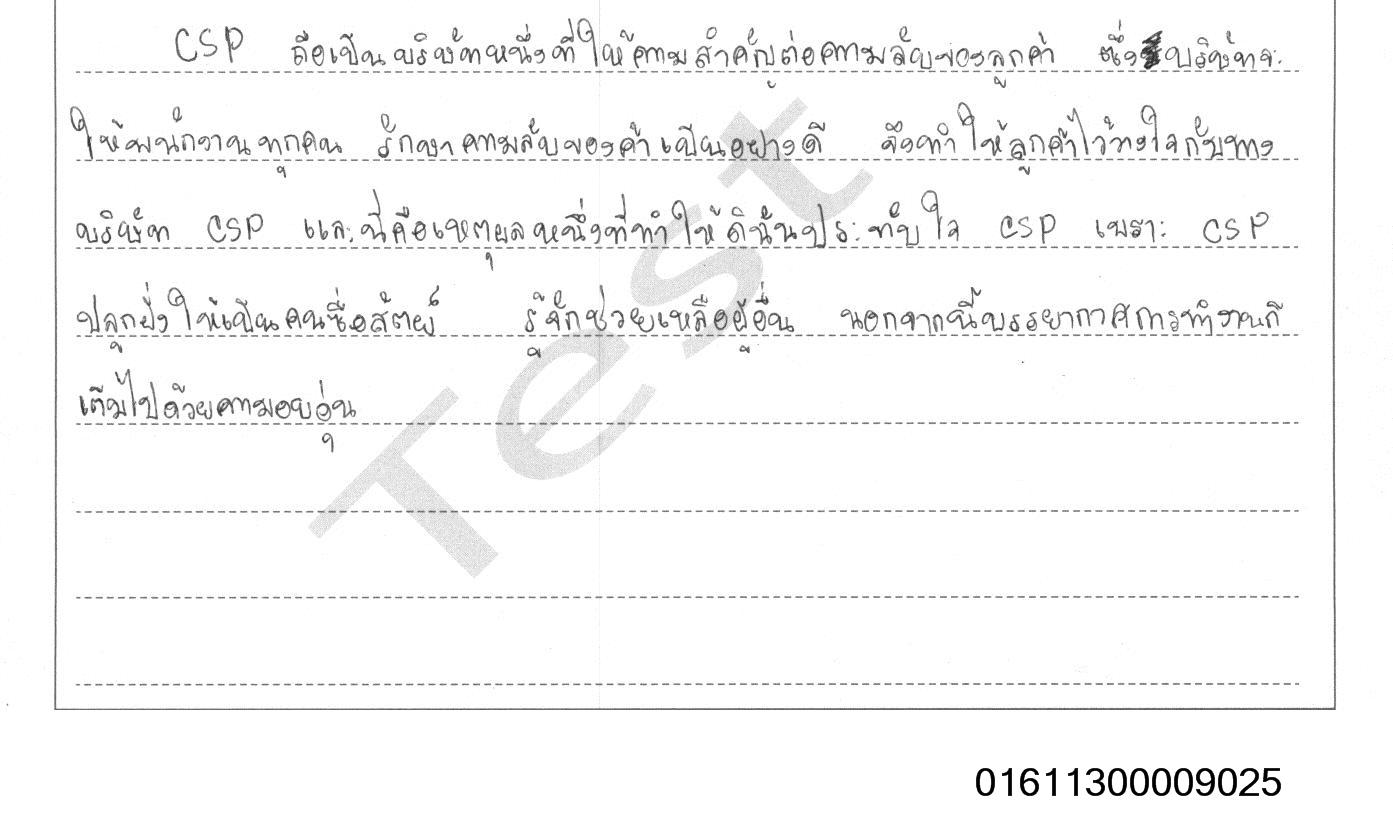 CSP ถือเป็นบริษัทหนึ่งที่ให้ความสำคัญต่อความลับของลูกค้า ซึ่งบริษัทจะ
ให้พนักงานทุกคน รักษาความลับของค้าเป็นอย่างดี จึงทำให้ลูกค้าไว้วางใจกับทาง
บริษัท CSP และนี่คือเหตุผลหนึ่งที่ทำให้ดิฉันประทับใจ CSP เพราะ CSP
ปลูกฝั่งให้เป็นคนซื่อสัตย์ รู้จักช่วยเหลือผู้อื่น นอกจากนี้บรรยากาศการทำงานก็
เต็มไปด้วยความอบอุ่น
Test
01611300009025